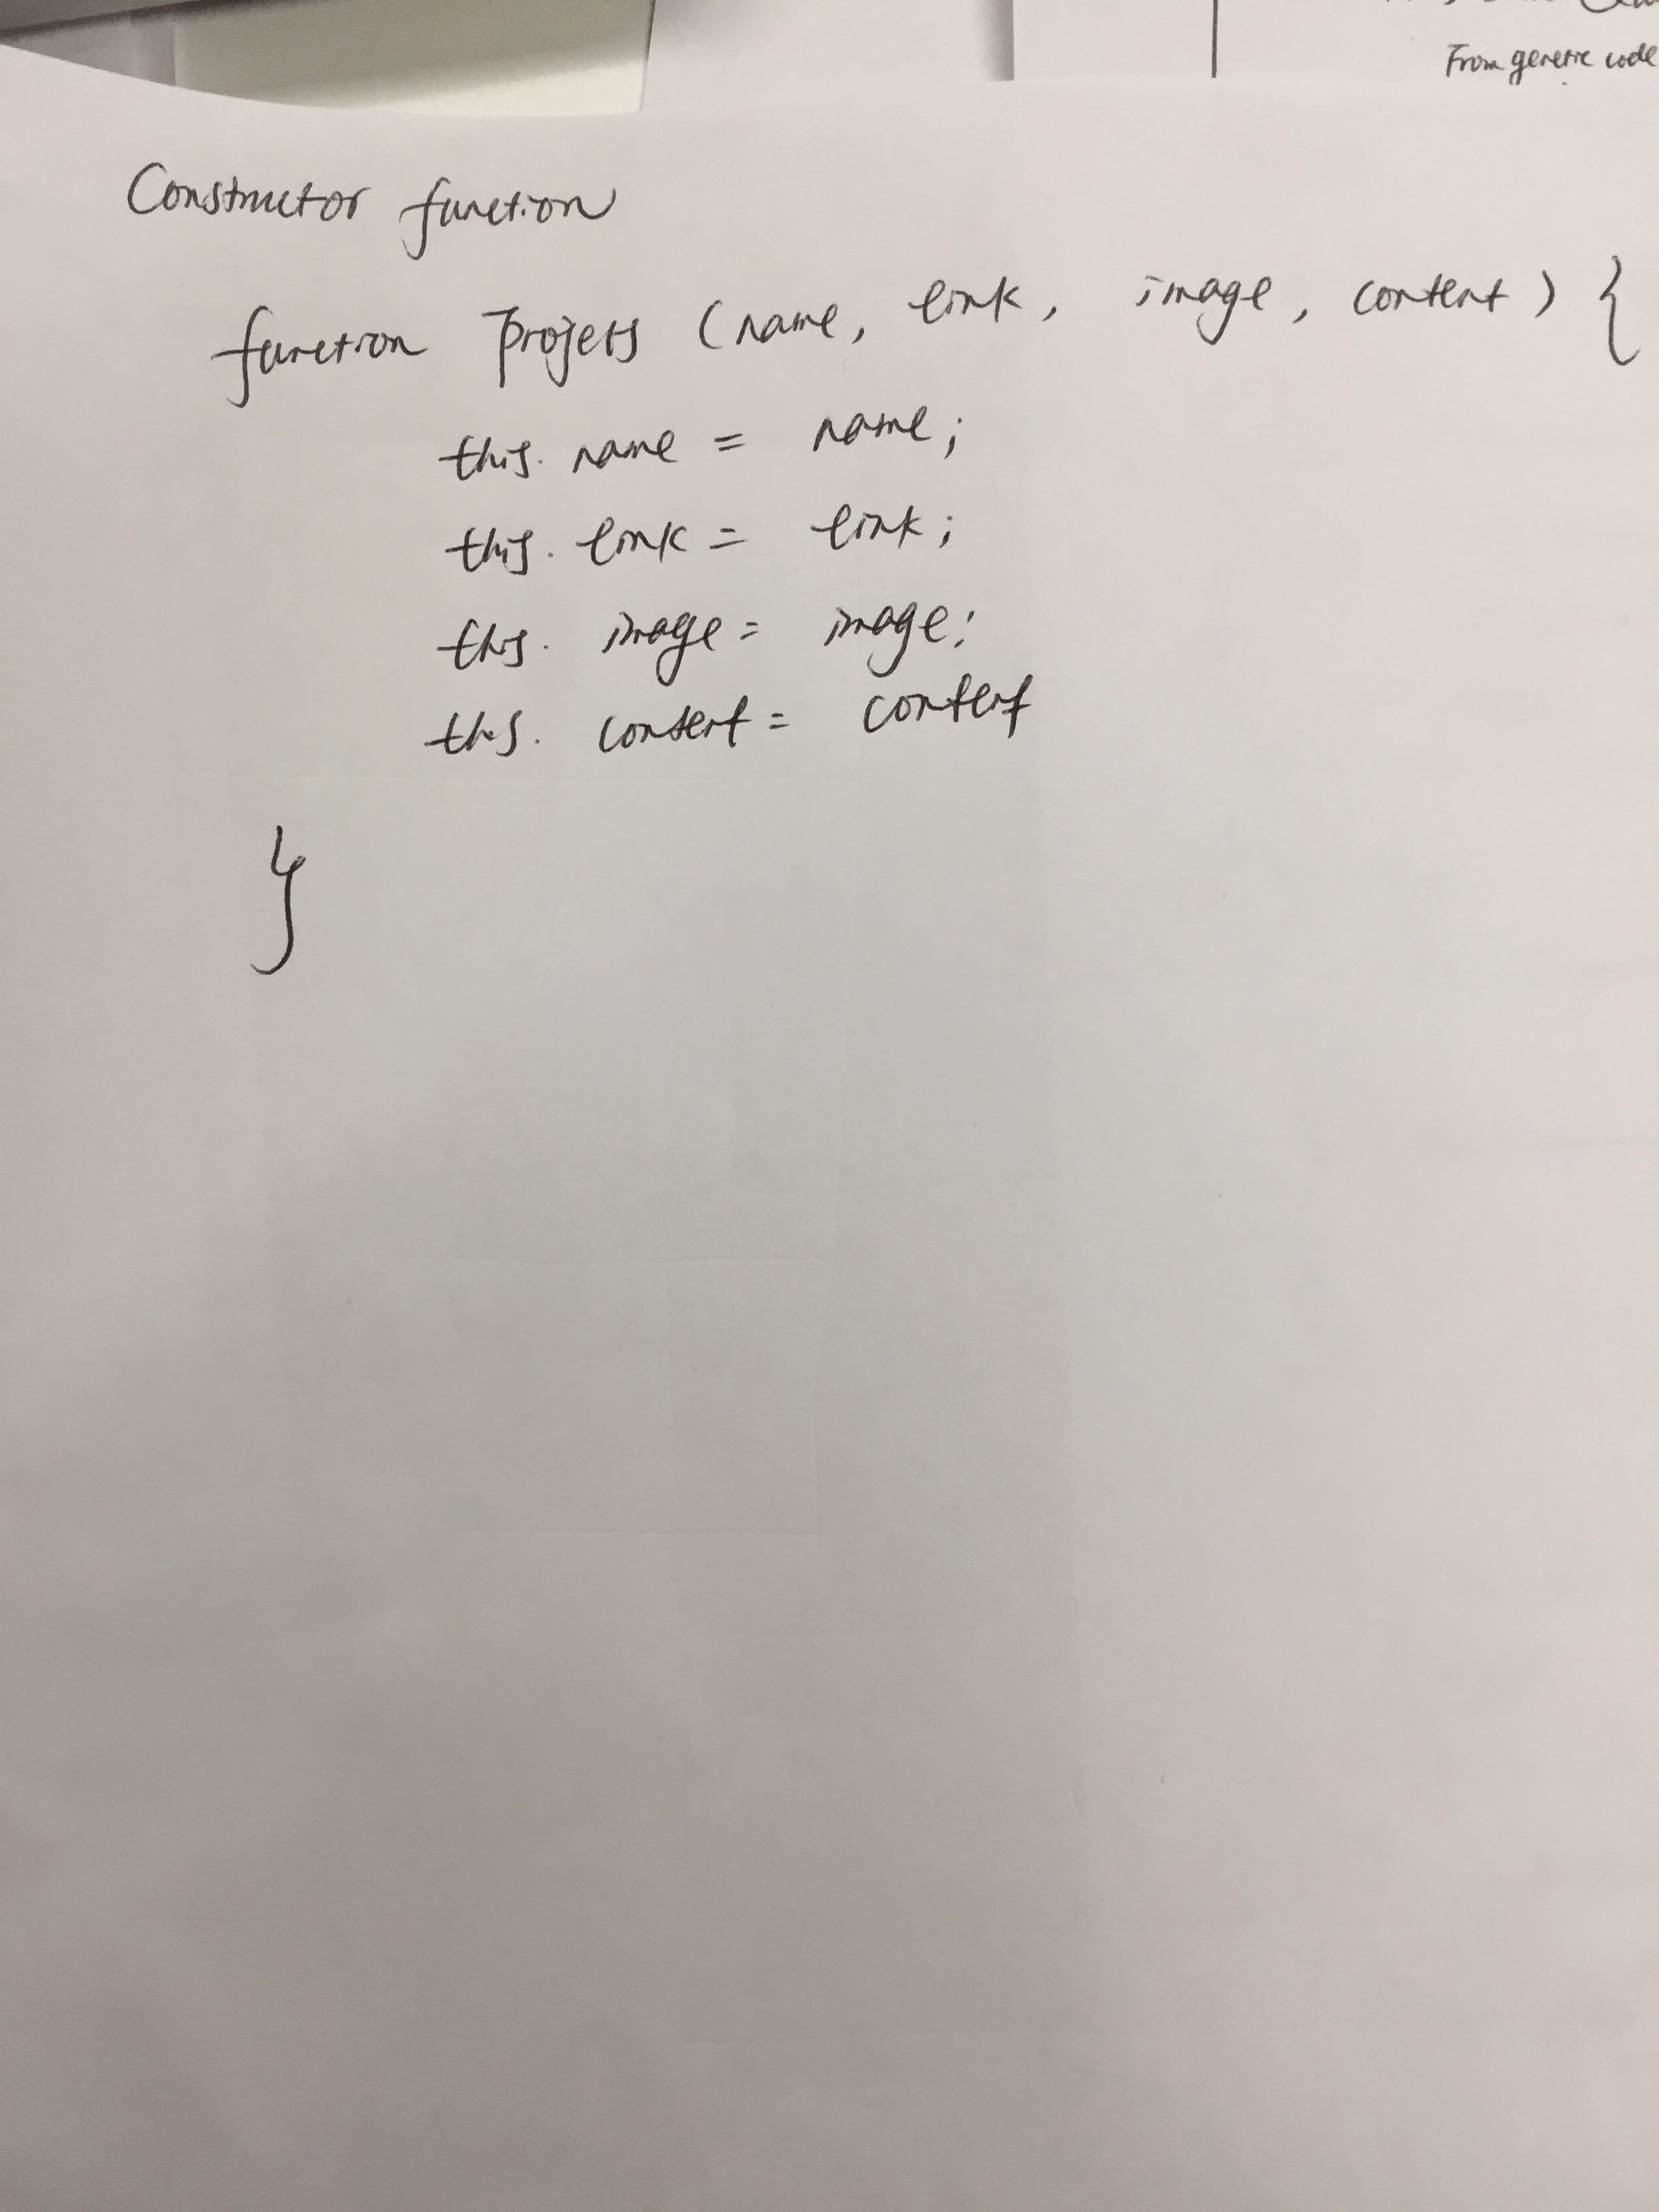 From generic code
Constructor function
function Projets (name, link, image, content) {
this. name = name;
this. link = link;
this. image = image;
this. content = content
}